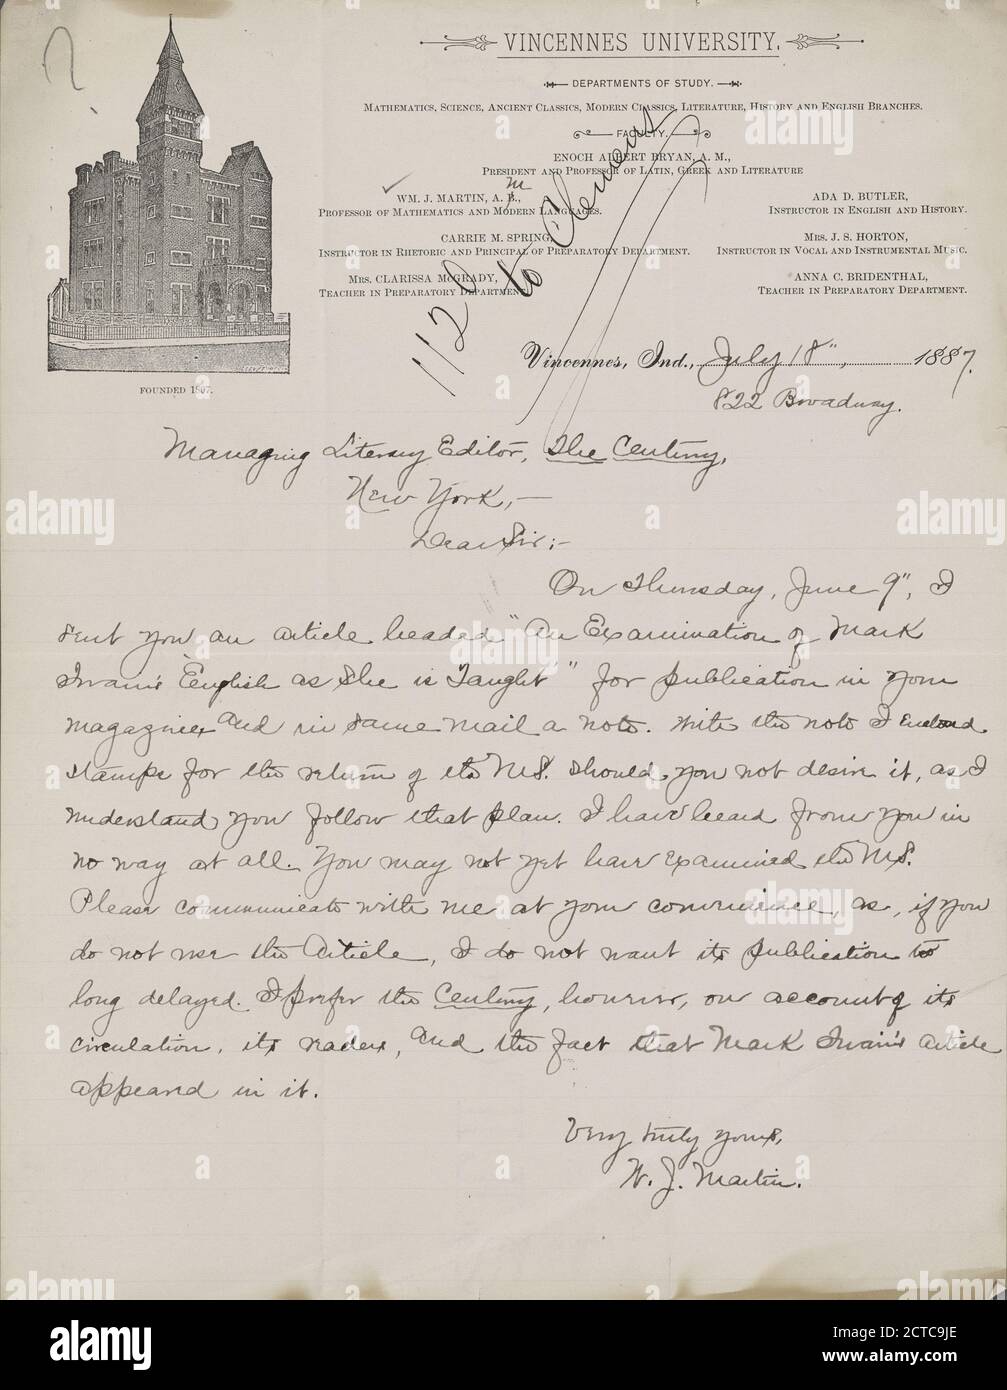 ?
VINCENNES UNIVERSITY.
DEPARTMENTS OF STUDY.
MATHEMATICS, SCIENCE, ANCIENT CLASSICS, MODERN CLASSICS, LITERATURE, HISTORY AND ENGLISH BRANCHES.
FACULTY.
ENOCH ALBERT BRYAN, A. M.,
PRESIDENT AND PROFESSOR OF LATIN, GREEK AND LITERATURE
WM. J. MARTIN, A. M.,
PROFESSOR OF MATHEMATICS AND MODERN LANGUAGES.
CARRIE M. SPRING,
INSTRUCTOR IN RHETORIC AND PRINCIPAL OF PREPARATORY DEPARTMENT.
MRS. CLARISSA MCGRADY,
TEACHER IN PREPARATORY DEPARTMENT.
ADA D. BUTLER,
INSTRUCTOR IN ENGLISH AND HISTORY.
MRS. J. S. HORTON,
INSTRUCTOR IN VOCAL AND INSTRUMENTAL MUSIC.
ANNA C. BRIDENTHAL,
TEACHER IN PREPARATORY DEPARTMENT.
1120
to Clemens
FOUNDED 1807.
Vincennes, Ind., July 18", 1887.
822 Broadway.
Managing Literary Editor, The Century,
New York,—
Dear Sir:—
On Thursday, June 9", I
sent you an article headed "An Examination of Mark
Twain's 'English as She is Taught'" for publication in your
magazine, and in same mail a note. With the note I enclosed
stamps for the return of the MS. should you not desire it, as I
understand you follow that plan. I have heard from you in
no way at all. You may not yet have examined the MS.
Please communicate with me at your convenience, as, if you
do not use the Article, I do not want its publication to
long delayed. I prefer the Century, however, on account of its
circulation, its readers, and the fact that Mark Twain's article
appeared in it.
Very truly yours,
W. J. Martin.
alamy
alamy
Image ID: 2CTC9JE
www.alamy.com